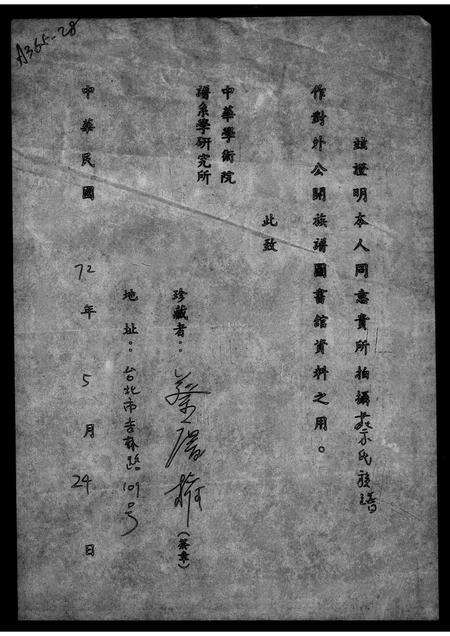 A365-28
茲證明本人同意貴所拍攝蔡氏族譜
作對外公開族譜圖書館資料之用。
此致
中華學術院
譜系學研究所
珍藏者：蔡
(簽章)
地址：台北市吉林路109号
中華民國72年5月24日